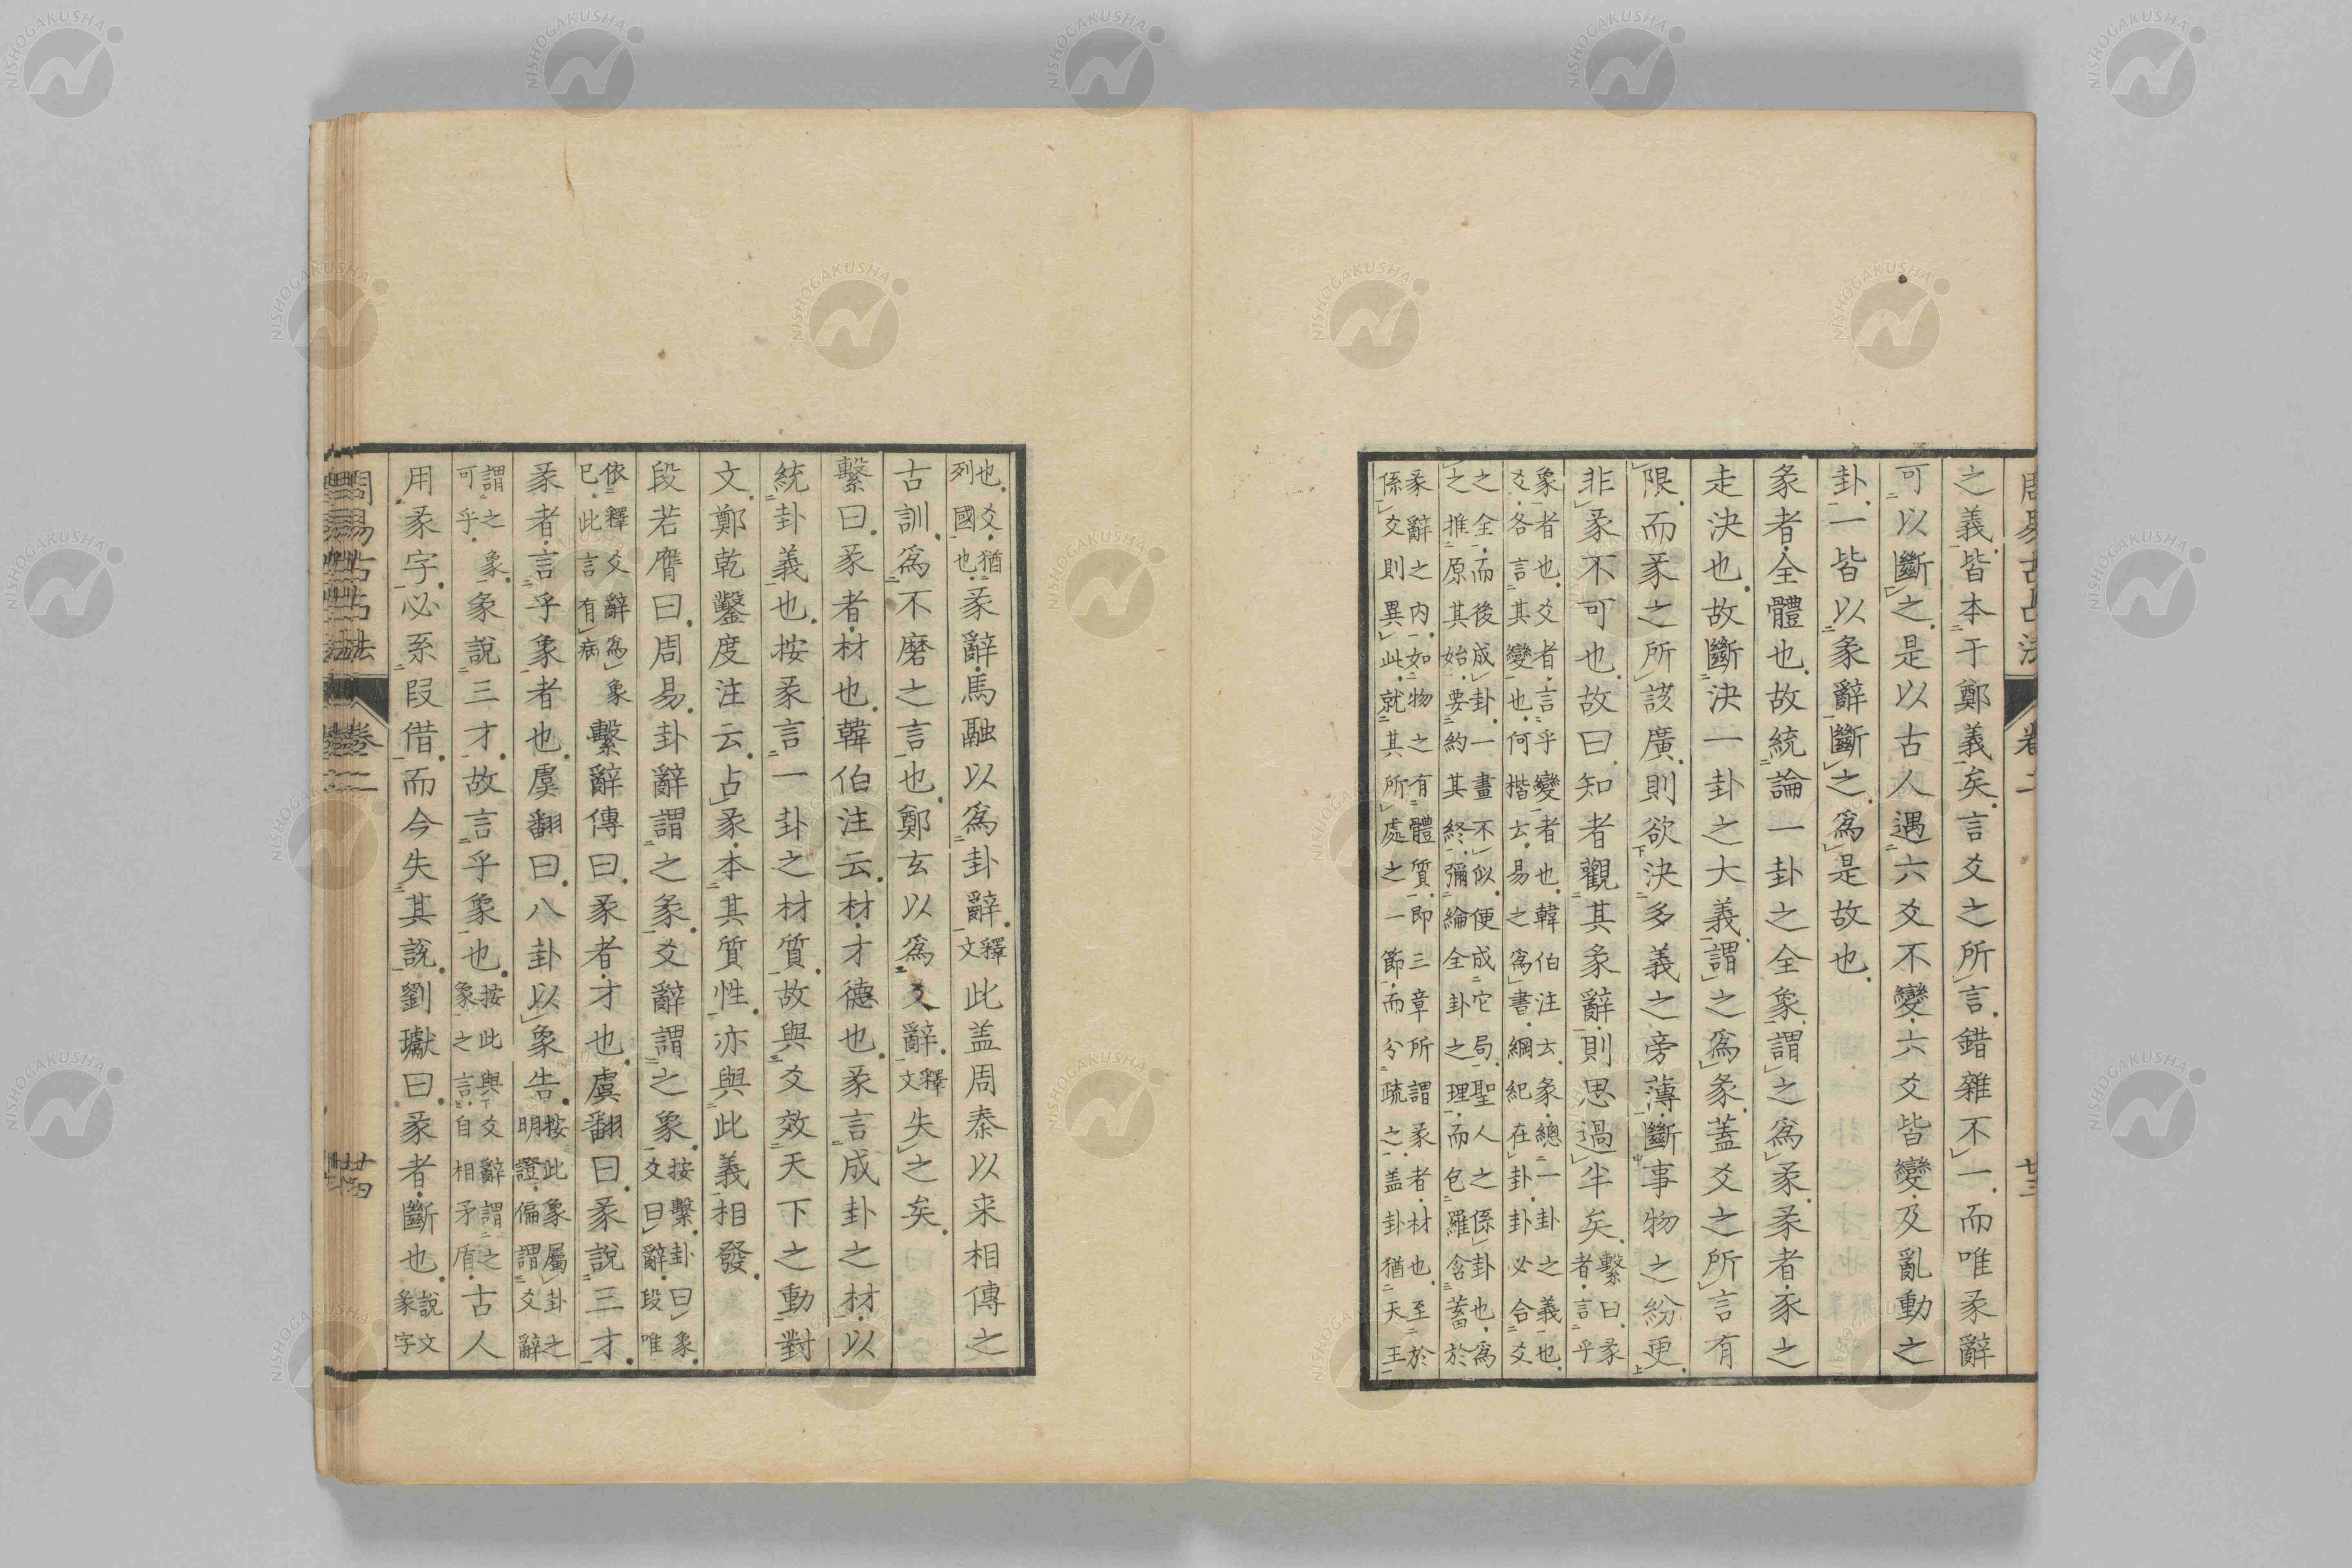 周易古占法 卷二 廿三
之義皆本于鄭義矣言爻之所言錯雜不一而唯彖辭
可以斷之是以古人遇六爻不變六爻皆變及亂動之
卦一皆以彖辭斷之爲是故也
彖者全體也故統論一卦之全象謂之爲彖彖者豕之
走決也故斷決一卦之大義謂之爲彖蓋爻之所言有
限而彖之所該廣則欲決多義之旁薄斷事物之紛更
非彖不可也故曰知者觀其彖辭則思過半矣繫曰彖
者言乎
象者也爻者言乎變者也韓伯注云彖總一卦之義也
爻各言其變也何楷云易之爲書綱紀在卦卦必合爻
之全而後成卦一畫不似便成它局聖人之係卦也爲
之推原其始要約其終彌綸全卦之理而包羅含蓄於
彖辭之內如物之有體質即三章所謂彖者材也至於
係交則異此就其所處之一節而分疏之盖卦猶天王
也爻猶
列國也彖辭馬融以爲卦辭釋
文此盖周秦以来相傳之
古訓爲不磨之言也鄭玄以爲爻辭釋
文失之矣
繫曰彖者材也韓伯注云材才德也彖言成卦之材以
統卦義也按彖言一卦之材質故與爻效天下之動對
文鄭乾鑿度注云占彖本其質性亦與此義相發
段若膺曰周易卦辭謂之彖爻辭謂之象按繫卦曰象
爻曰辭段唯
依釋爻辭爲象
已此言有病繫辭傳曰彖者才也虞翻曰彖說三才
彖者言乎象者也虞翻曰八卦以象告按此象屬卦之
明證偏謂爻辭
謂之象
可乎象說三才故言乎象也按此與爻辭謂之
象之言自相矛盾古人
用彖字必系叚借而今失其說劉瓛曰彖者斷也說文
彖字
周易古占法 卷二 廿四